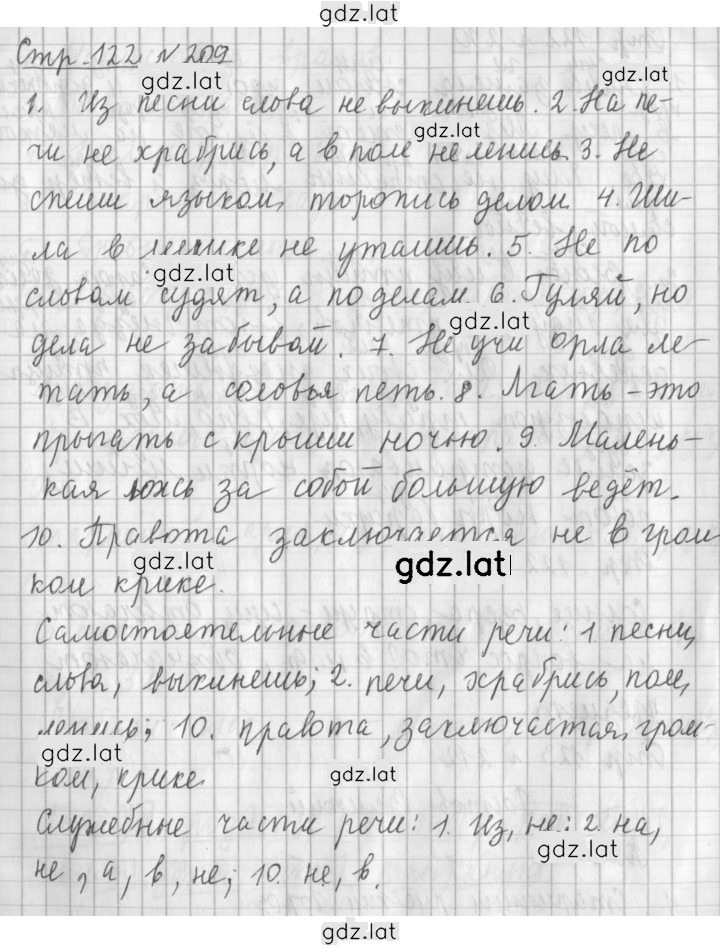 gdz.lat
Стр. 122 № 209
gdz.lat
1. Из песни слова не выкинешь. 2. На пе-
gdz.lat
чи не храбрись, а в поле не ленись. 3. Не
спеши языком, торопись делом. 4. Ши-
ла в мешке не утаишь. 5. Не по
gdz.lat
словам судят, а по делам. 6. Гуляй, но
gdz.lat
дела не забывай. 7. Не учи орла ле-
тать, а соловья петь. 8. Лгать - это
прыгать с крыши ночью. 9. Малень-
кая ложь за собой большую ведёт.
10. Правота заключается не в гром-
gdz.lat gdz.lat
ком крике.
Самостоятельные части речи: 1. песни,
слова, выкинешь; 2. печи, храбрись, поле,
ленись; 10. правота, заключается, гром-
gdz.lat
ком, крике.
gdz.lat
Служебные части речи: 1. Из, не; 2. на,
gdz.lat
не, а, в, не; 10. не, в.
gdz.lat